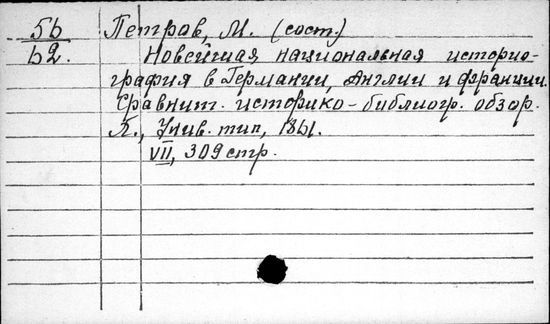 5б Петров, М. (сост.)
б2. Новейшая национальная историо-
графия в Германии, Англии и Франции.
Сравнит. историко-библиогр. обзор.
Х., Унив. тип, 1861.
VII, 309 стр.